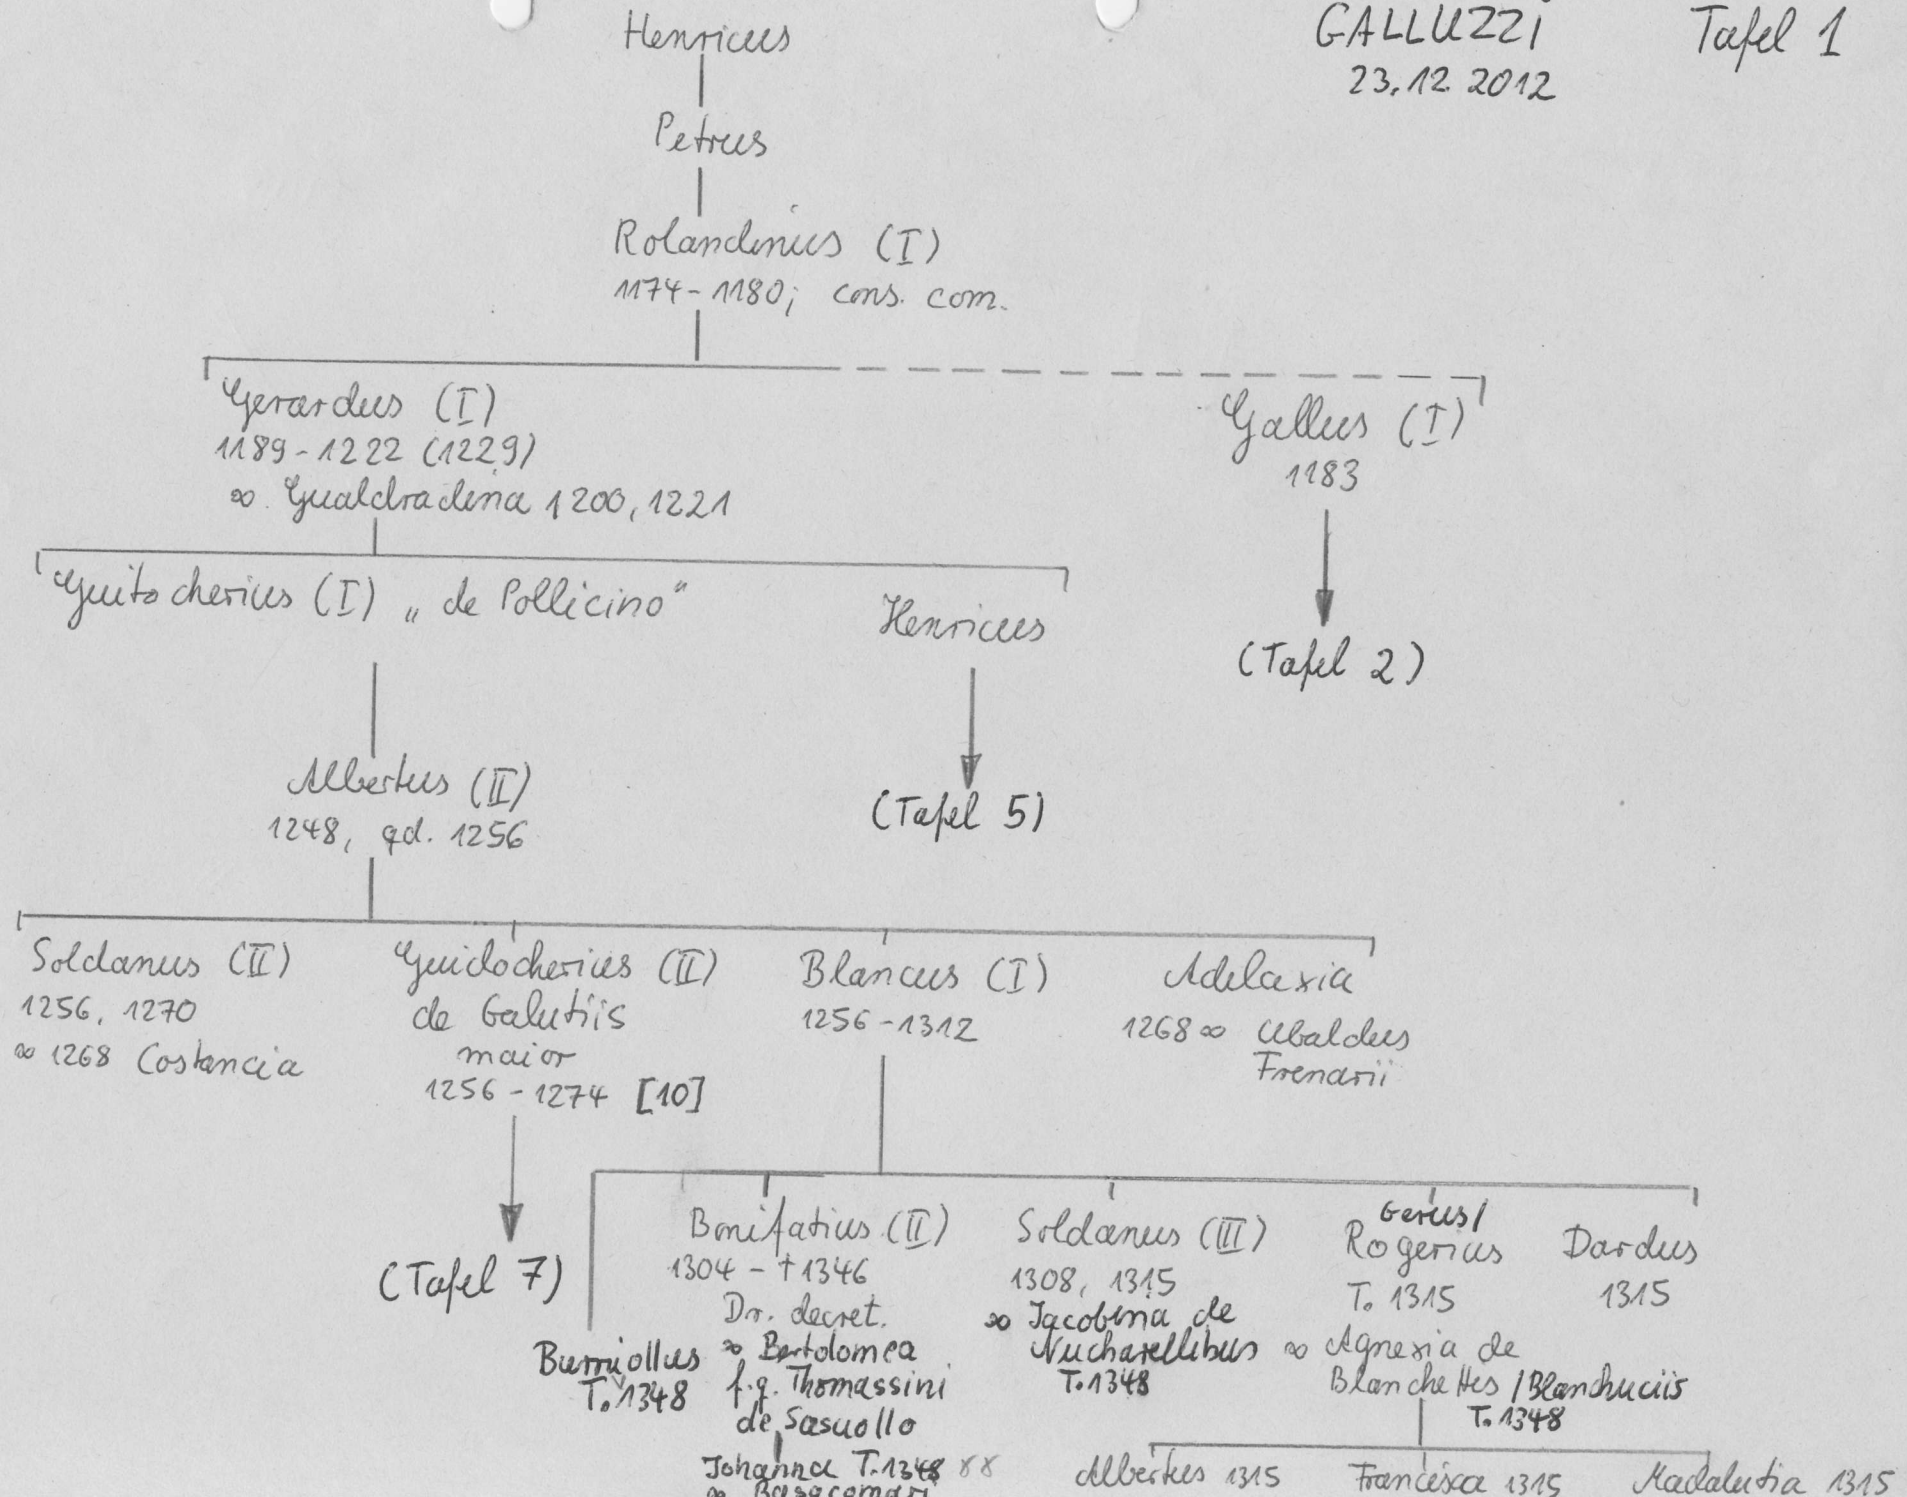 GALLUZZI Tafel 1
23.12.2012
Henricus
Petrus
Rolandinus (I)
1174-1180; cons. com.
Gerardus (I)
1189-1222 (1229)
∞ Gualdradina 1200, 1221
Gallus (I)
1183
(Tafel 2)
Guitocherius (I) „de Pollicino"
Henricus
(Tafel 5)
Albertus (II)
1248, qd. 1256
Soldanus (II)
1256, 1270
∞ 1268 Costancia
Guidocherius (II)
de Galutiis
maior
1256-1274 [10]
(Tafel 7)
Blancus (I)
1256-1312
Adelaxia
1268 ∞ Ubaldus
Frenarii
Burniollus
T. 1348
Bonifatius (II)
1304 - †1346
Dr. decret.
∞ Bertolomea
f.q. Thomassini
de Sasuollo
Johanna T. 1348
∞ Basacomari
Soldanus (III)
1308, 1315
∞ Jacobina de
Nucharellibus
T. 1348
Gerus/
Rogerius
T. 1315
∞ Agnexia de
Blanchettes / Blanchuciis
T. 1348
Dardus
1315
Albertus 1315
Francisca 1315
Madalutia 1315